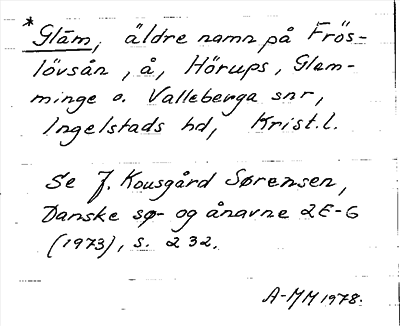 *Glām, äldre namn på Frös-
lövsån, å, Hörups, Glem-
minge o. Valleberga snr,
Ingelstads hd, Krist.l.
Se J. Kousgård Sørensen,
Danske sø- og ånavne 2E-G
(1973), s. 232.
A-MM 1978.